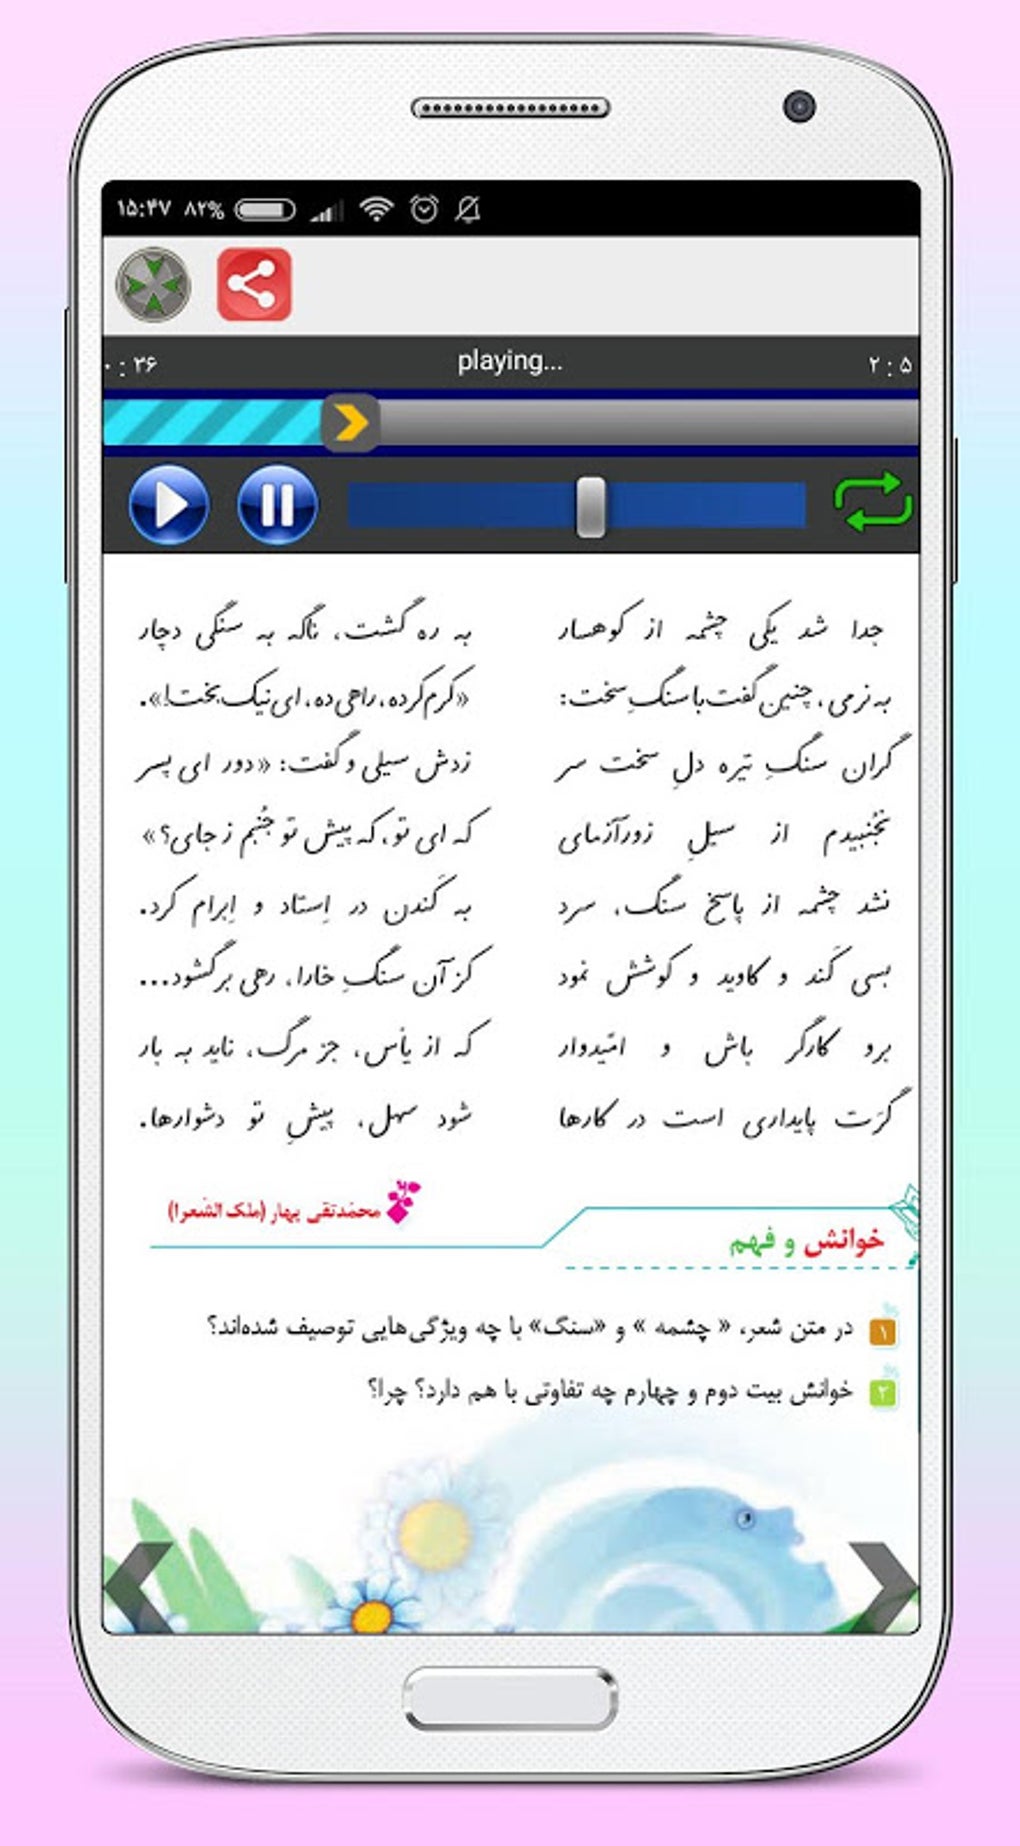 ۱۵:۴۷ ۸۲%
۰ : ۳۶ playing... ۲ : ۵
جدا شد یکی چشمه از کوهسار به ره گشت، ناگه به سنگی دچار
به نرمی، چنین گفت با سنگِ سخت: «کرم کرده، راهی ده، ای نیک‌بخت!».
گران سنگِ تیره دلِ سخت سر زدش سیلی و گفت: «دور ای پسر
نَجُنبیدم از سیلِ زورآزمای که ای تو، که پیش تو جُنبم ز جای؟»
نشد چشمه از پاسخ سنگ، سرد به کَندن در اِستاد و اِبرام کرد.
بسی کَند و کاوید و کوشش نمود کز آن سنگِ خارا، رهی برگشود...
برو کارگر باش و امّیدوار که از یأس، جز مرگ، ناید به بار
گرَت پایداری است در کارها شود سهل، پیشِ تو دشوارها.
محمّدتقی بهار (ملک الشّعرا)
خوانش و فهم
۱ در متن شعر، « چشمه » و «سنگ» با چه ویژگی‌هایی توصیف شده‌اند؟
۲ خوانش بیت دوم و چهارم چه تفاوتی با هم دارد؟ چرا؟